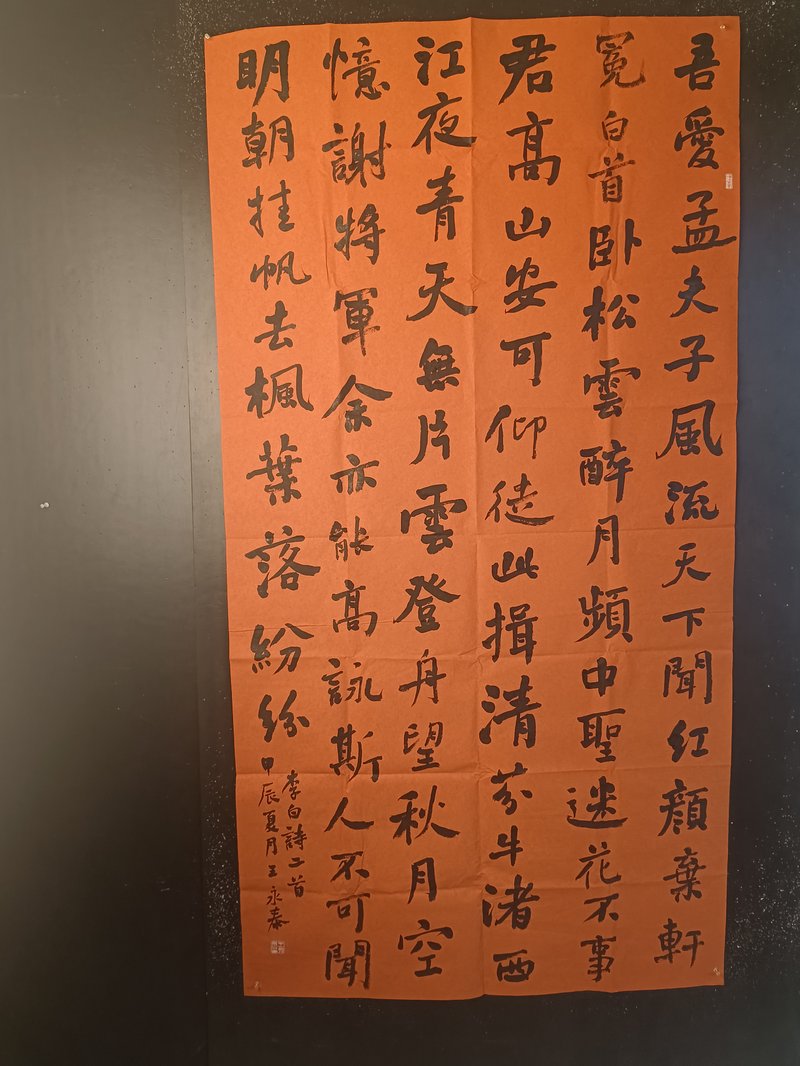 吾愛孟夫子風流天下聞紅顏棄軒
冕白首卧松雲醉月頻中聖迷花不事
君高山安可仰徒此揖清芬牛渚西
江夜青天無片雲登舟望秋月空
憶謝將軍余亦能高詠斯人不可聞
明朝挂帆去楓葉落紛紛
李白詩二首
甲辰夏月王永泰